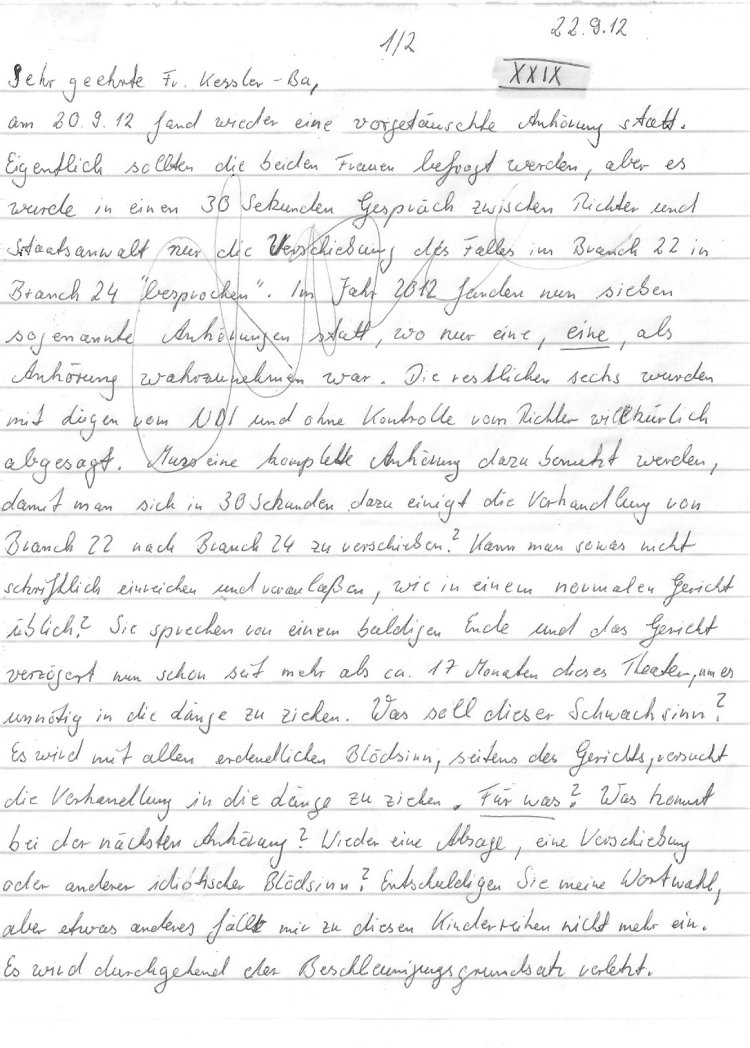 22.9.12
1/2
XXIX
Sehr geehrte Fr. Kessler-Ba,
am 20.9.12 fand wieder eine vorgetäuschte Anhörung statt.
Eigentlich sollten die beiden Frauen befragt werden, aber es
wurde in einen 30 Sekunden Gespräch zwischen Richter und
Staatsanwalt nur die Verschiebung des Falles im Branch 22 in
Branch 24 "besprochen". Im Jahr 2012 fanden nun sieben
sogenannte Anhörungen statt, wo nur eine, eine, als
Anhörung wahrzunehmen war. Die restlichen sechs wurden
mit Lügen vom NDI und ohne Kontrolle vom Richter willkürlich
abgesagt. Muss eine komplette Anhörung dazu benutzt werden,
damit man sich in 30 Sekunden dazu einigt die Verhandlung von
Branch 22 nach Branch 24 zu verschieben? Kann man sowas nicht
schriftlich einreichen und veranlaßen, wie in einem normalen Gericht
üblich? Sie sprechen von einem baldigen Ende und das Gericht
verzögert nun schon seit mehr als ca. 17 Monaten dieses Theater, um es
unnötig in die Länge zu ziehen. Was soll dieser Schwachsinn?
Es wird mit allen erdendlichen Blödsinn, seitens des Gerichts, versucht
die Verhandlung in die Länge zu ziehen. Für was? Was kommt
bei der nächsten Anhörung? Wieder eine Absage, eine Verschiebung
oder anderer idiotischer Blödsinn? Entschuldigen Sie meine Wortwahl,
aber etwas anderes fällt mir zu diesen Kindereien nicht mehr ein.
Es wird durchgehend der Beschleunigungsgrundsatz verletzt.